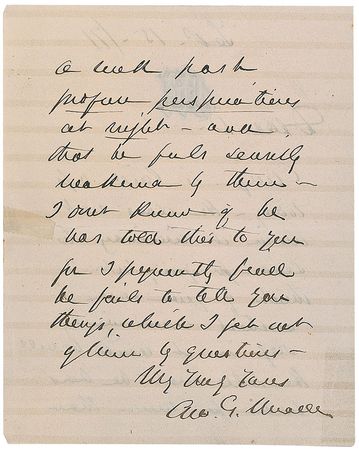 a week past
profuse perspirations
at night – and
that he feels sensibly
weakened by them –
I dont know if he
has told this to you
for I frequently find
he fails to tell you
things, which I get out
of him by questions –
Very Truly Yours
Geo. G.